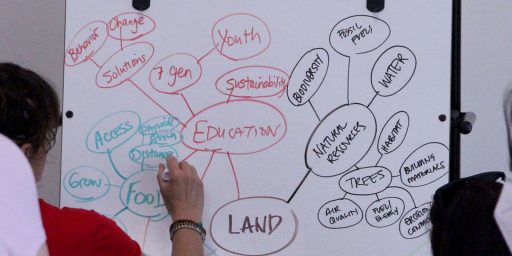 Change
Behavior
Solutions
7 gen
Youth
Sustainability
EDUCATION
FOSSIL
FUELS
BIODIVERSITY
WATER
NATURAL
RESOURCES
HABITAT
TREES
BUILDING
MATERIALS
AIR
QUALITY
FUEL/
ENERGY
EROSION
CONTROL
ACCESS
Distance
Grow
FOOD
LAND